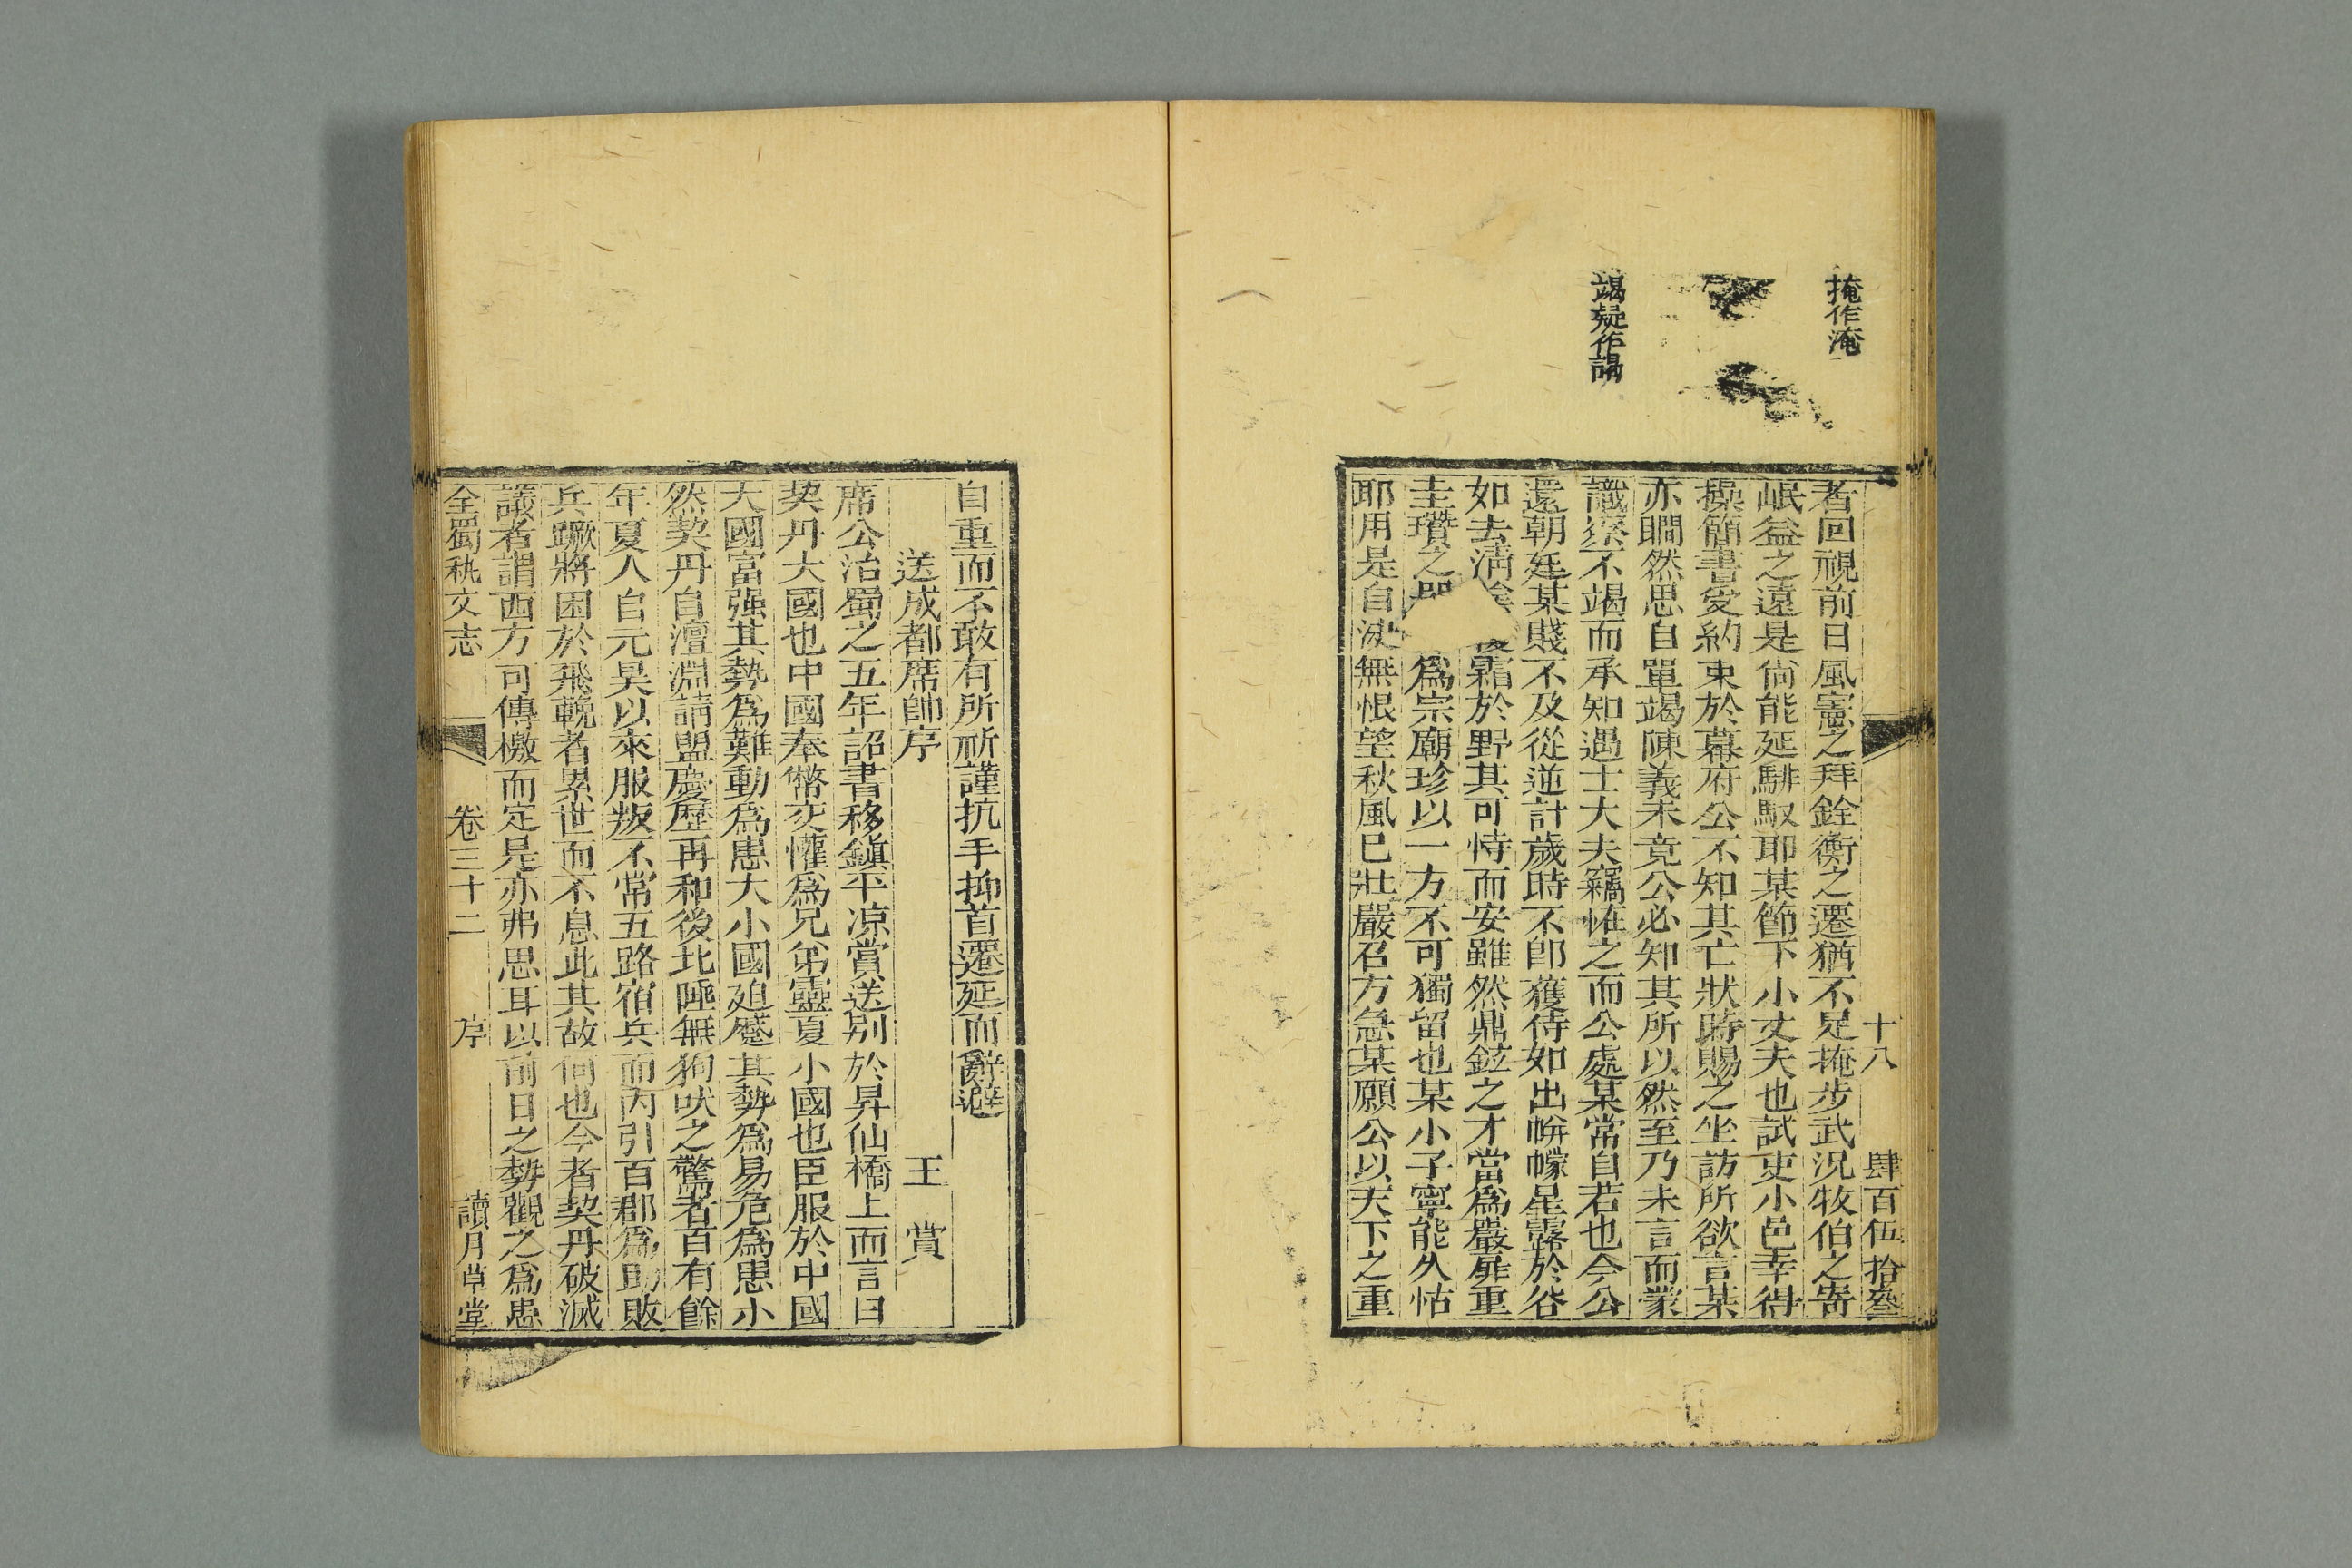 掩作淹
竭疑作謁
十八 肆百伍拾叁
者回視前日風憲之拜銓衡之遷猶不足掩步武況牧伯之寄
岷益之遠是尙能延騑馭耶某節下小丈夫也試吏小邑幸得
操簡書受約束於幕府公不知其亡狀時賜之坐訪所欲言某
亦瞷然思自單竭陳義未竟公必知其所以然至乃未言而蒙
識察不竭而承知遇士大夫竊怪之而公處某常自若也今公
還朝廷某賤不及從逆計歲時不卽獲侍如出帡幪星露於谷
如去淸陰霜於野其可恃而安雖然鼎鉉之才當爲嚴扉重
圭瓚之爲宗廟珍以一方不可獨留也某小子寧能久怙
耶用是自決無恨望秋風已壯嚴召方急某願公以天下之重
自重而不敢有所祈謹抗手抑首遷延而辭避
送成都席帥序 王賞
席公治蜀之五年詔書移鎭平涼賞送別於昇仙橋上而言曰
契丹大國也中國奉幣交懽爲兄弟靈夏小國也臣服於中國
大國富强其勢爲難動爲患大小國廹蹙其勢爲易危爲患小
然契丹自澶淵請盟慶歷再和後北陲無狗吠之驚者百有餘
年夏人自元昊以來服叛不常五路宿兵而內引百郡爲助敗
兵蹶將困於飛輓者累世而不息此其故何也今者契丹破滅
議者謂西方可傳檄而定是亦弗思耳以前日之勢觀之爲患
全蜀秇文志 卷三十二 序 讀月草堂